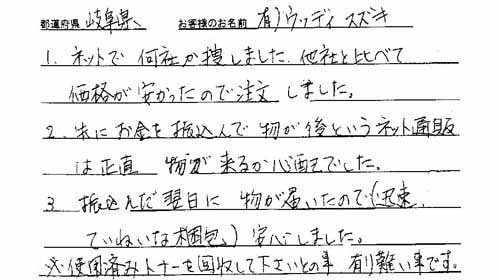 都道府県 岐阜県、 お客様のお名前 有)ウッディスズキ
1. ネットで 何社か捜しました. 他社と比べて
価格が安かったので注文しました。
2. 先にお金を振込んで物が後というネット通販
は正直 物が来るか心配でした。
3. 振込んだ翌日に物が届いたので(迅速.
ていねいな梱包。)安心しました。
※使用済みトナーを回収して下さいとの事 有り難い事です。